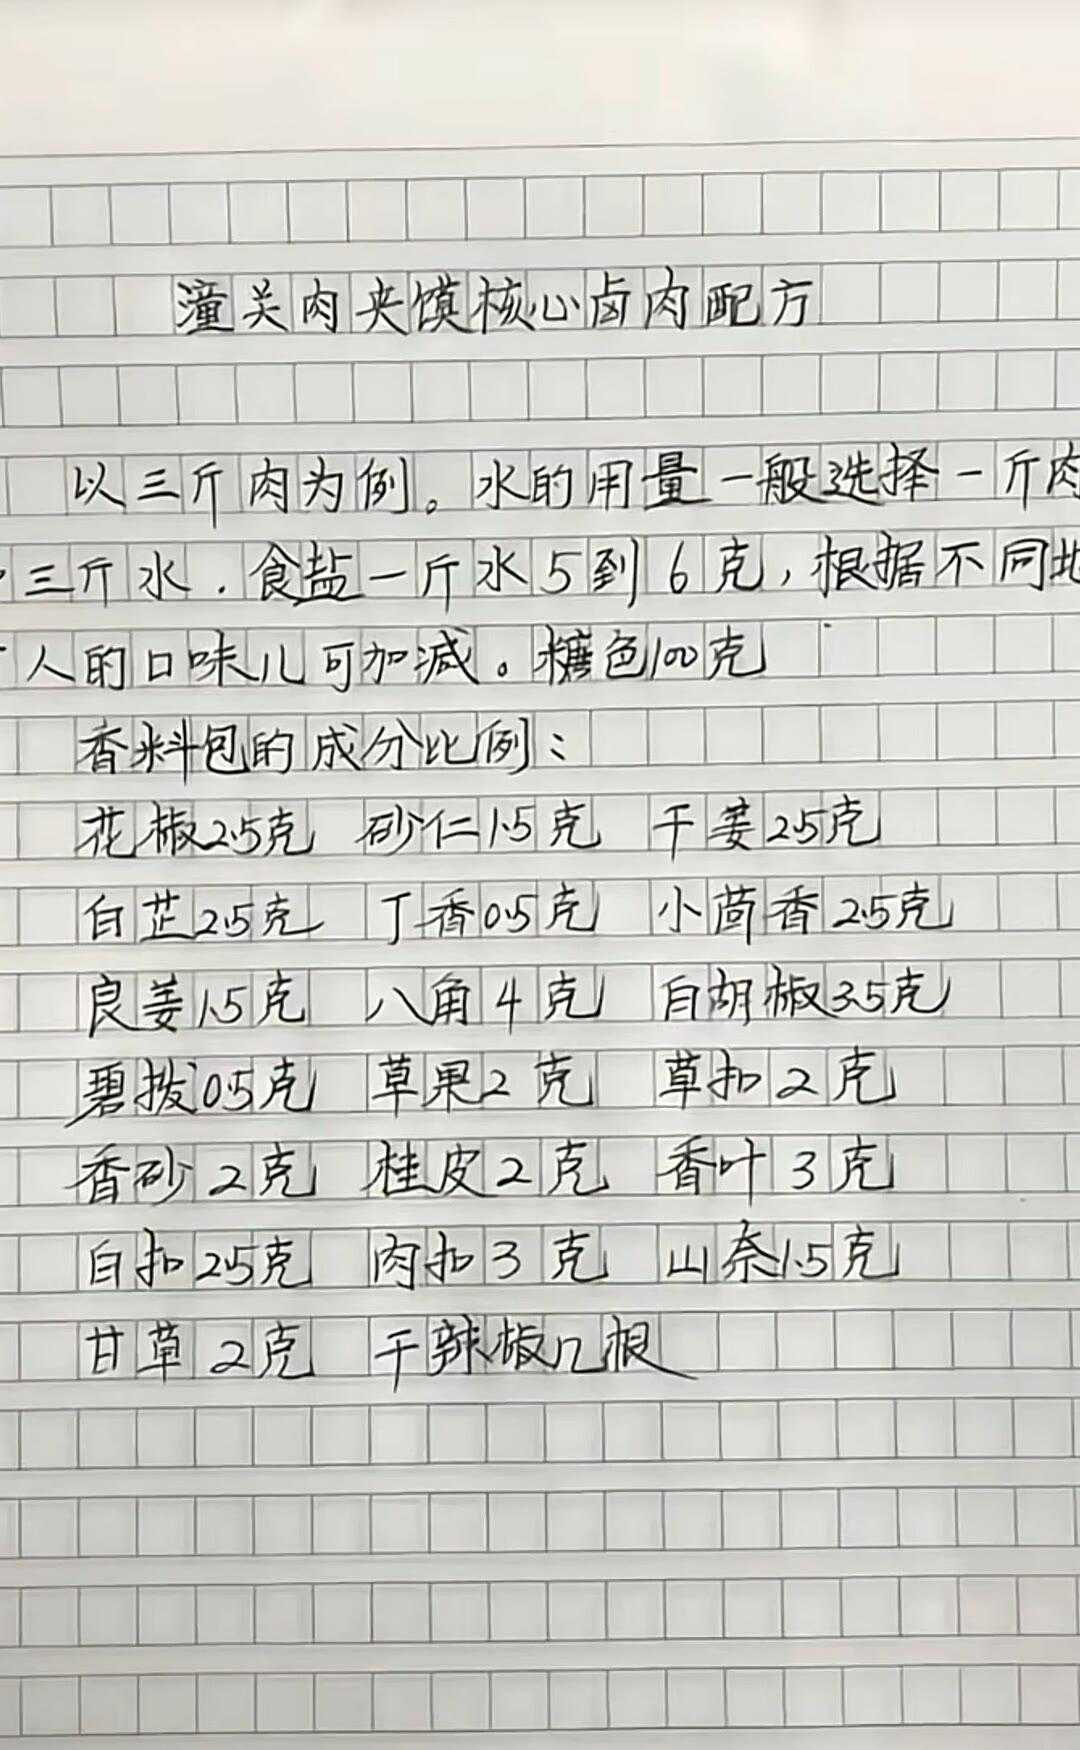 潼关肉夹馍核心卤肉配方
以三斤肉为例。水的用量一般选择一斤肉
三斤水.食盐一斤水5到6克,根据不同地
人的口味儿可加减。糖色100克
香料包的成分比例:
花椒2.5克 砂仁1.5克 干姜2.5克
白芷2.5克 丁香0.5克 小茴香2.5克
良姜1.5克 八角4克 白胡椒3.5克
碧拨0.5克 草果2克 草扣2克
香砂2克 桂皮2克 香叶3克
白扣2.5克 肉扣3克 山奈1.5克
甘草2克 干辣椒几根